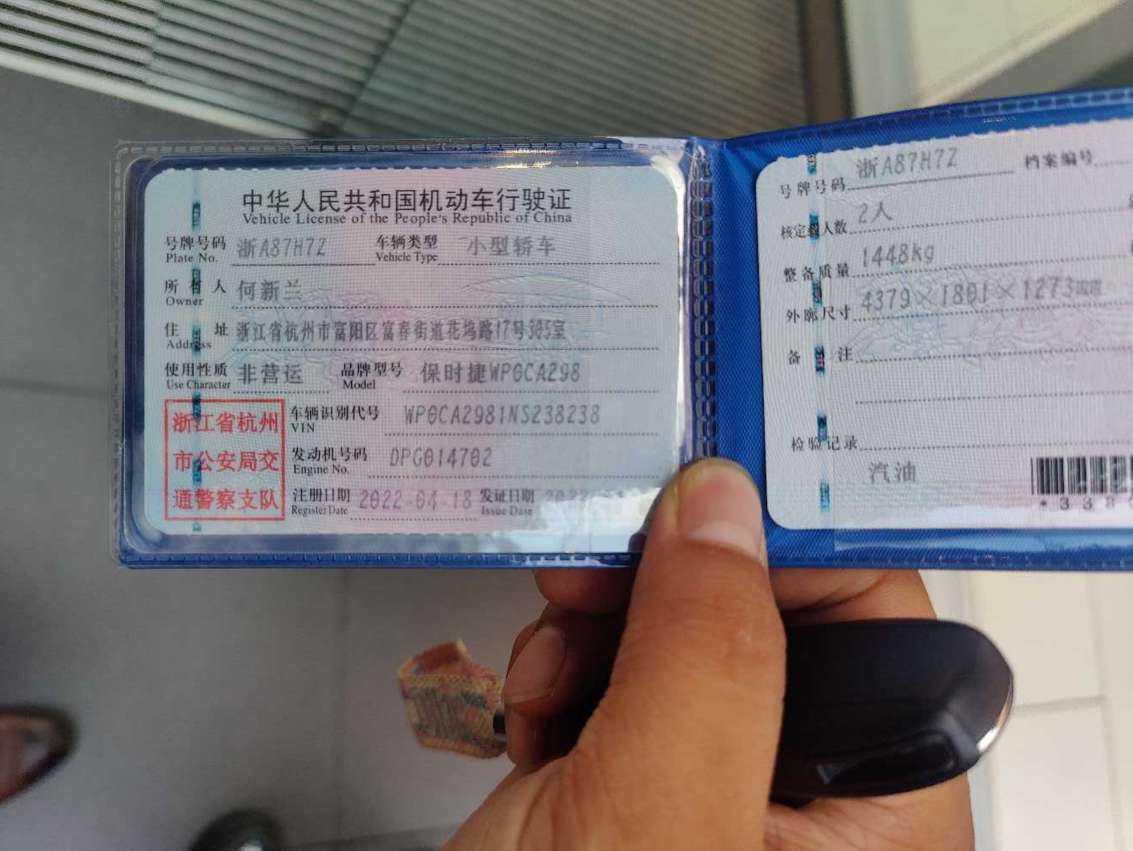 中华人民共和国机动车行驶证
Vehicle License of the People's Republic of China
号牌号码 浙A87H7Z 车辆类型 小型轿车
Plate No. Vehicle Type
所有人 何新兰
Owner
住址 浙江省杭州市富阳区富春街道花坞路17号305室
Address
使用性质 非营运 品牌型号 保时捷WP0CA298
Use Character Model
浙江省杭州
市公安局交
通警察支队
车辆识别代号 WP0CA2981NS238238
VIN
发动机号码 DPG014702
Engine No.
注册日期 2022-04-18 发证日期
Register Date Issue Date
号牌号码 浙A87H7Z 档案编号
核定载人数 2人
整备质量 1448kg
外廓尺寸 4379×1801×1273mm
备注
检验记录
汽油